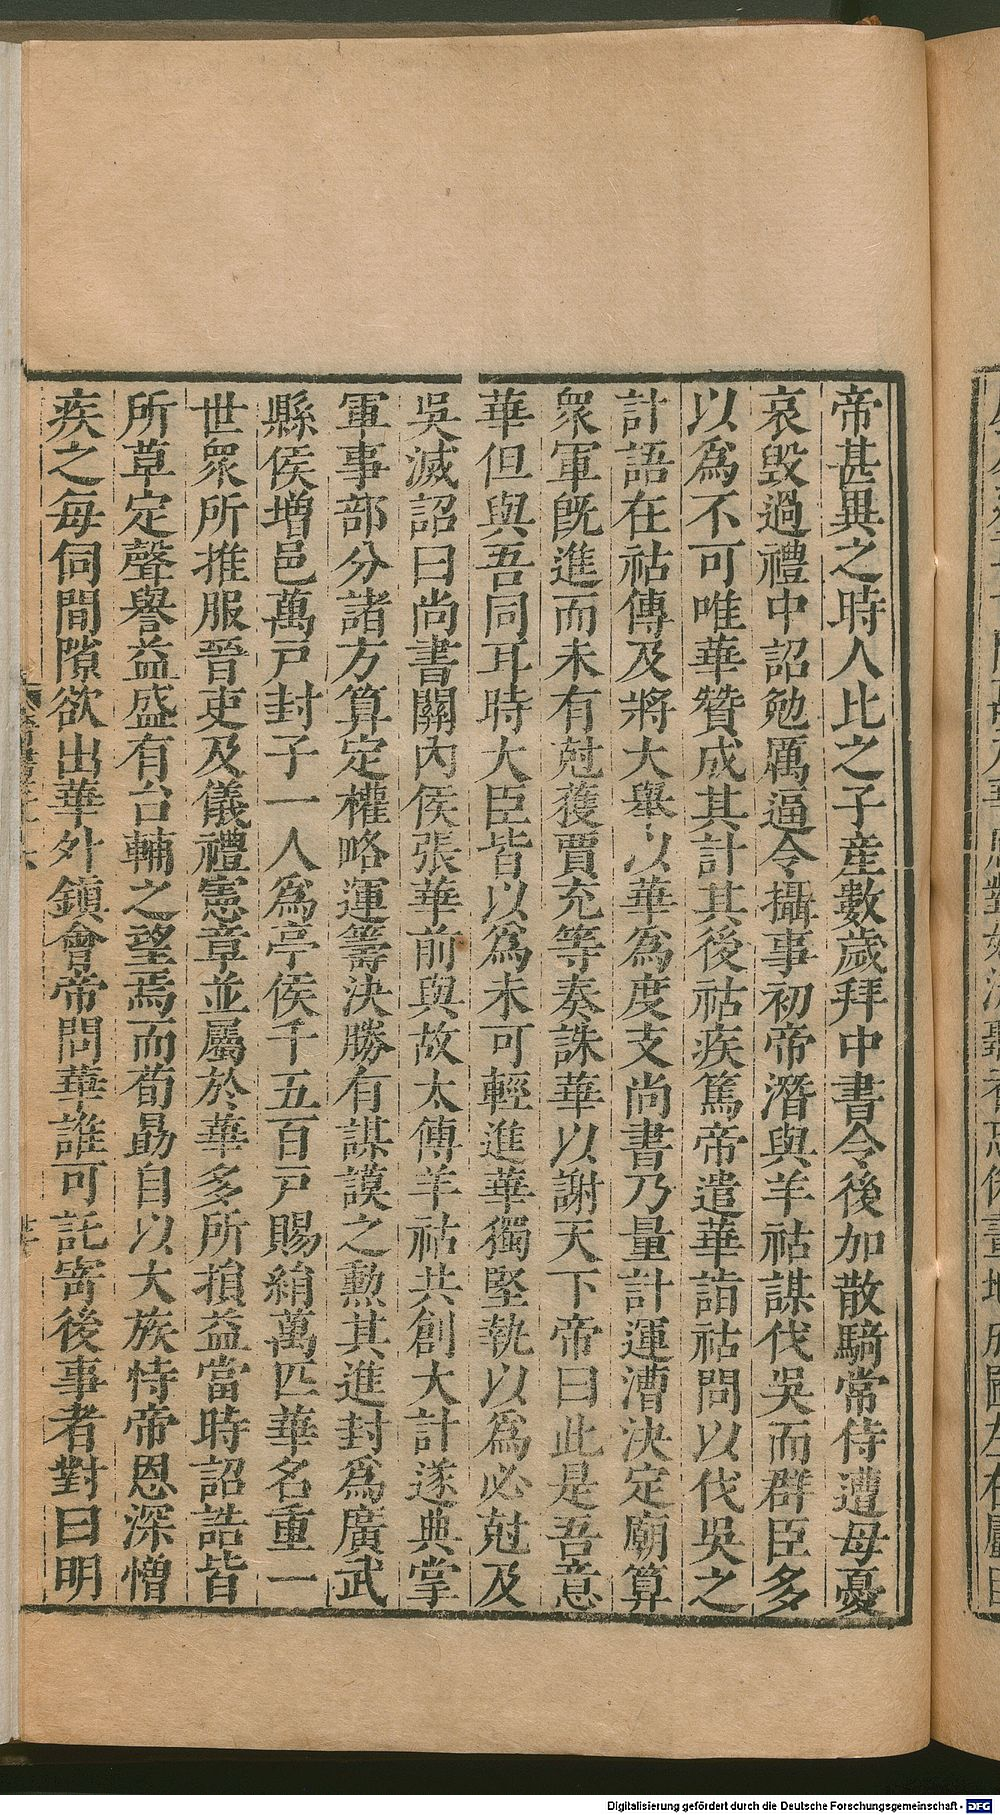 帝甚異之時人比之子産數歲拜中書令後加散騎常侍遭母憂
哀毀過禮中詔勉厲逼令攝事初帝潛與羊祜謀伐吳而群臣多
以爲不可唯華贊成其計其後祜疾篤帝遣華詣祜問以伐吳之
計語在祜傳及將大舉以華爲度支尚書乃量計運漕決定廟算
衆軍旣進而未有尅獲賈充等奏誅華以謝天下帝曰此是吾意
華但與吾同耳時大臣皆以爲未可輕進華獨堅執以爲必尅及
吳滅詔曰尚書關內侯張華前與故太傅羊祜共創大計遂典掌
軍事部分諸方算定權略運籌決勝有謀謨之勳其進封爲廣武
縣侯增邑萬戸封子一人爲亭侯千五百戸賜絹萬匹華名重一
世衆所推服晉吏及儀禮憲章並屬於華多所損益當時詔誥皆
所草定聲譽益盛有台輔之望焉而荀勗自以大族恃帝恩深憎
疾之每伺間隙欲出華外鎮會帝問華誰可託寄後事者對曰明
Digitalisierung gefördert durch die Deutsche Forschungsgemeinschaft - DFG